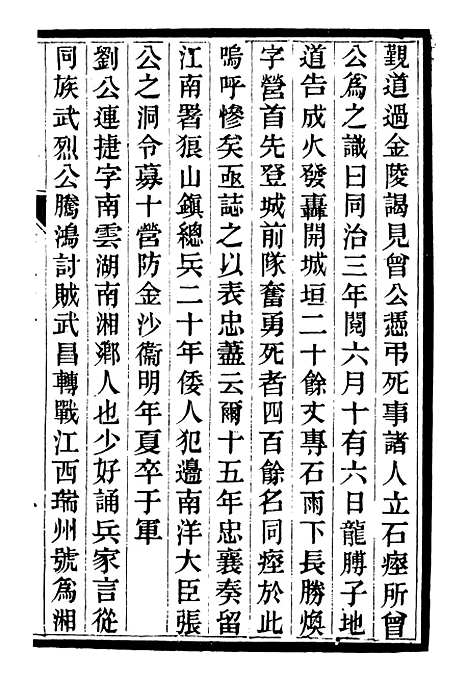 覲道過金陵謁見曾公憑弔死事諸人立石瘞所曾
公爲之識曰同治三年閱六月十有六日龍膊子地
道告成火發轟開城垣二十餘丈專石雨下長勝煥
字營首先登城前隊奮勇死者四百餘名同瘞於此
嗚呼慘矣亟誌之以表忠藎云爾十五年忠襄奏留
江南署狼山鎭總兵二十年倭人犯邊南洋大臣張
公之洞令募十營防金沙衞明年夏卒于軍
劉公連捷字南雲湖南湘鄕人也少好誦兵家言從
同族武烈公騰鴻討賊武昌轉戰江西瑞州號爲湘